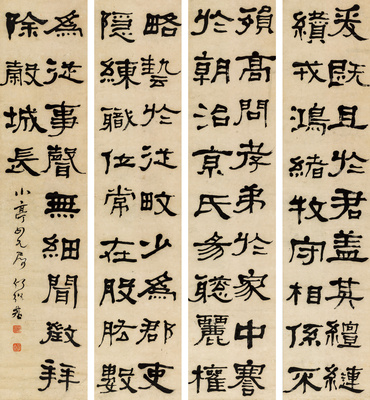 爰既且於君盖其繵縺
纘戎鴻緒牧守相係不
殞高問孝弟於家中謇
於朝治京氏易聰麗權
略藝於從畋少為郡吏
隱練職位常在股肱數
為從事聲無細聞徵拜
除穀城長
小亭 兄屬 何紹基